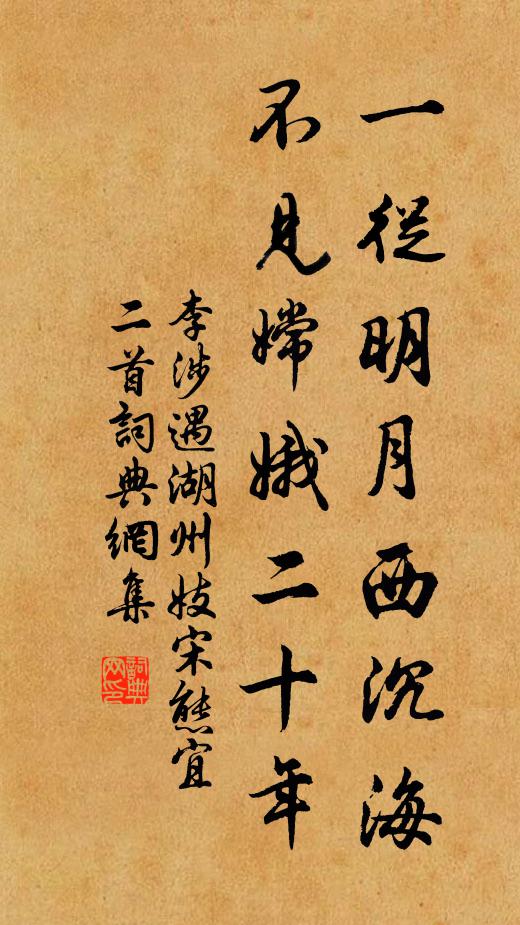 一從明月西沉海
不見嫦娥二十年
李涉遇湖州妓宋態宜
二首詞典網集
詞典
网印